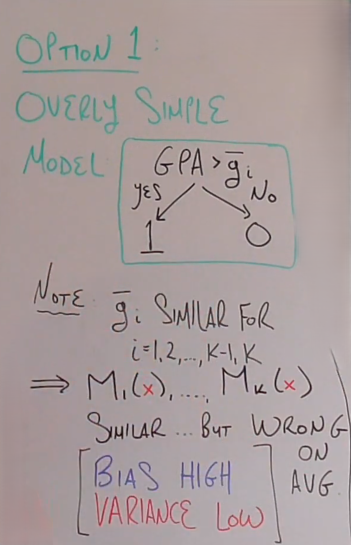 OPTION 1:
OVERLY SIMPLE
MODEL: GPA > g̅i
YES NO
1 0
NOTE: g̅i SIMILAR FOR
i=1,2,...,K-1,K
⇒ M1(x),...., MK(x)
SIMILAR... BUT WRONG
ON
AVG.
BIAS HIGH
VARIANCE LOW